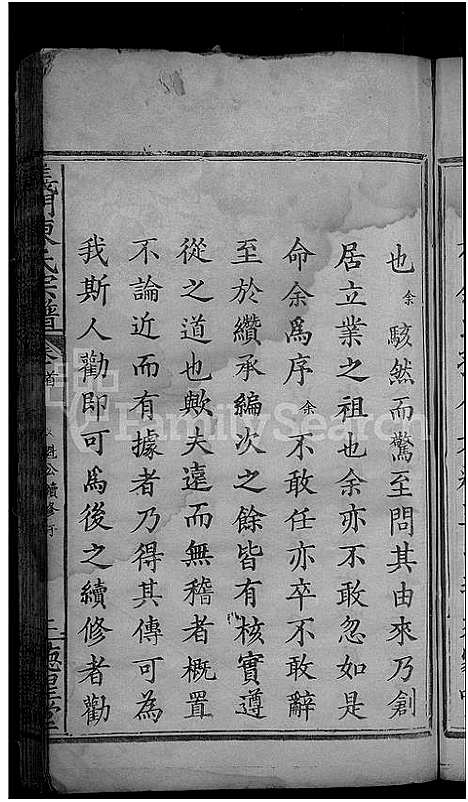 也余駭然而驚至問其由來乃創
居立業之祖也余亦不敢忽如是
命余爲序余不敢任亦卒不敢辭
至於纘承編次之餘皆有核實遵
從之道也歟夫遠而無稽者概置
不論近而有據者乃得其傳可為
我斯人勸即可爲後之續修者勸
義門陳氏宗譜 卷首 公續修序 三 德星堂
FamilySearch